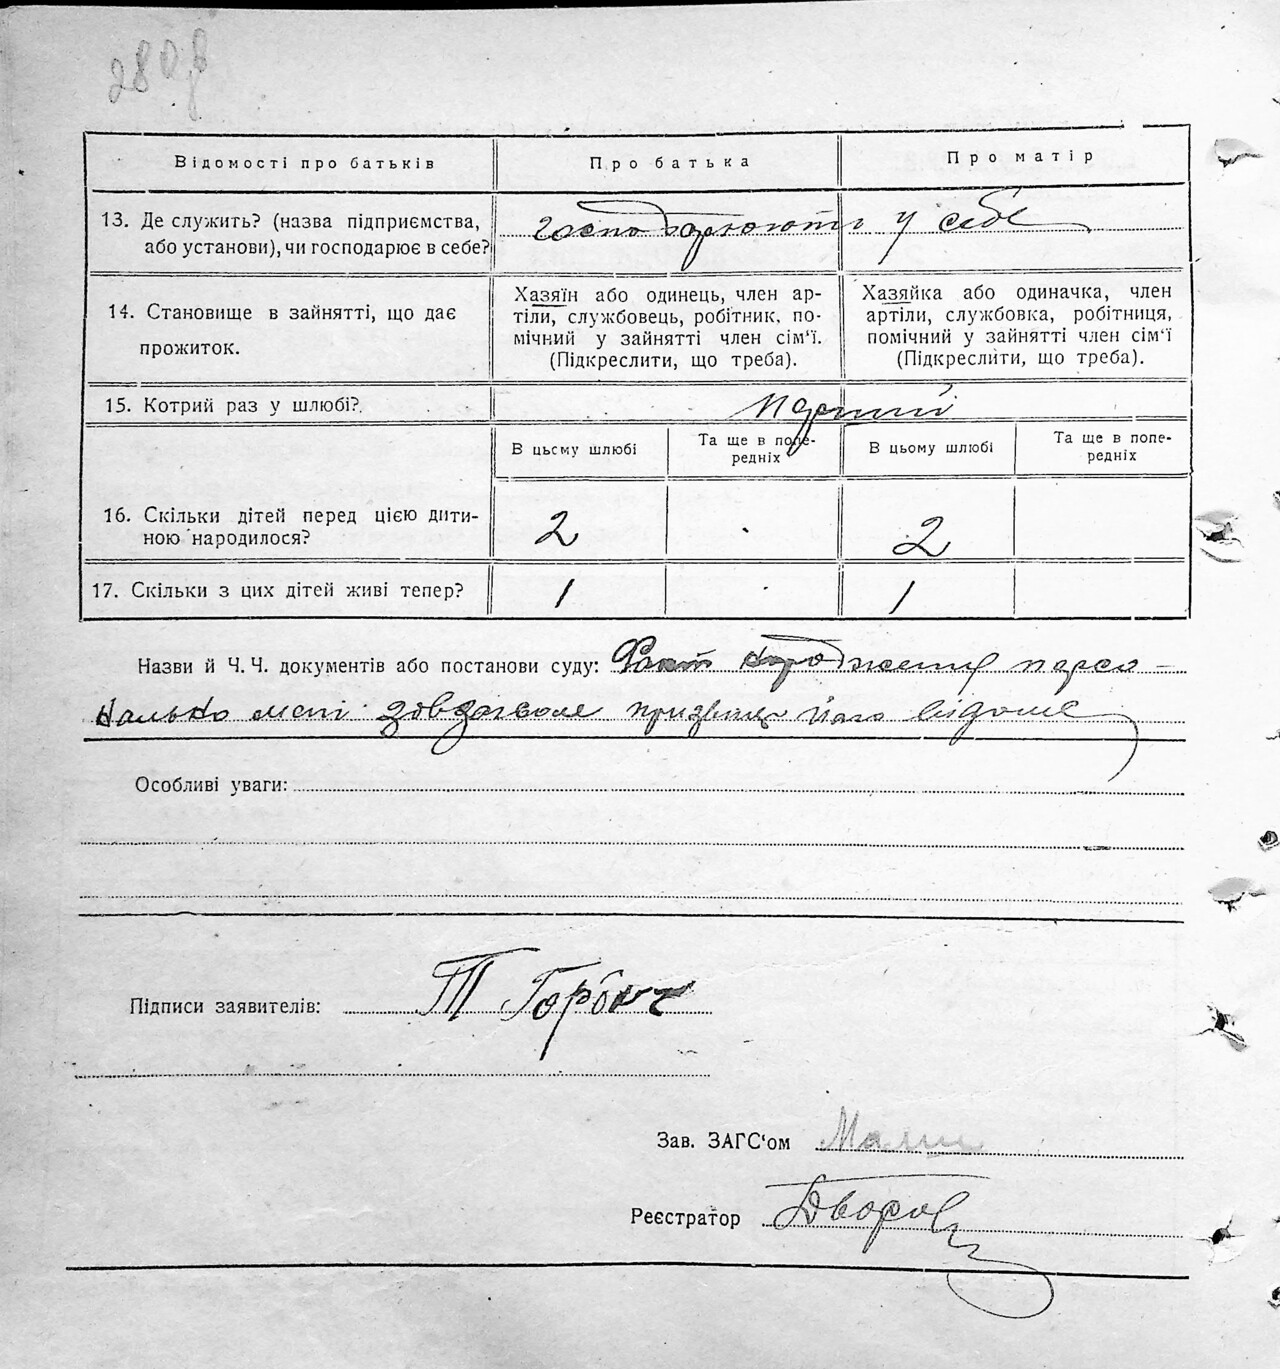 280
Відомості про батьків
Про батька
Про матір
13. Де служить? (назва підприємства,
або установи), чи господарює в себе?
господарюють у себе
14. Становище в зайнятті, що дає
прожиток.
Хазяїн або одинець, член ар-
тіли, службовець, робітник, по-
мічний у зайнятті член сім'ї.
(Підкреслити, що треба).
Хазяйка або одиначка, член
артіли, службовка, робітниця,
помічний у зайнятті член сім'ї
(Підкреслити, що треба).
15. Котрий раз у шлюбі?
перший
В цьому шлюбі
Та ще в попе-
редніх
В цьому шлюбі
Та ще в попе-
редніх
16. Скільки дітей перед цією дити-
ною народилося?
2
2
17. Скільки з цих дітей живі тепер?
1
1
Назви й Ч. Ч. документів або постанови суду: Факт народження персо-
нально мені призвище його відоме
Особливі уваги:
Підписи заявителів: Т Горбач
Зав. ЗАГС'ом
Реєстратор